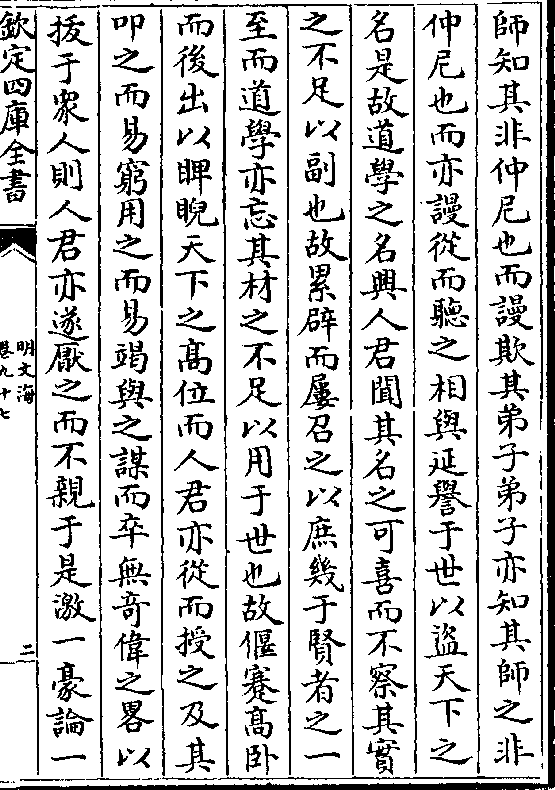 師知其非仲尼也而謾欺其弟子弟子亦知其師之非
仲尼也而亦謾從而聽之相與延譽于世以盜天下之
名是故道學之名興人君聞其名之可喜而不察其實
之不足以副也故累辟而屢召之以庶幾于賢者之一
至而道學亦忘其材之不足以用于世也故偃蹇高卧
而後出以睥睨天下之高位而人君亦從而授之及其
叩之而易窮用之而易竭與之謀而卒無奇偉之畧以
拔于衆人則人君亦遂厭之而不親于是激一豪論一
欽定四庫全書
明文海
卷九十七
二